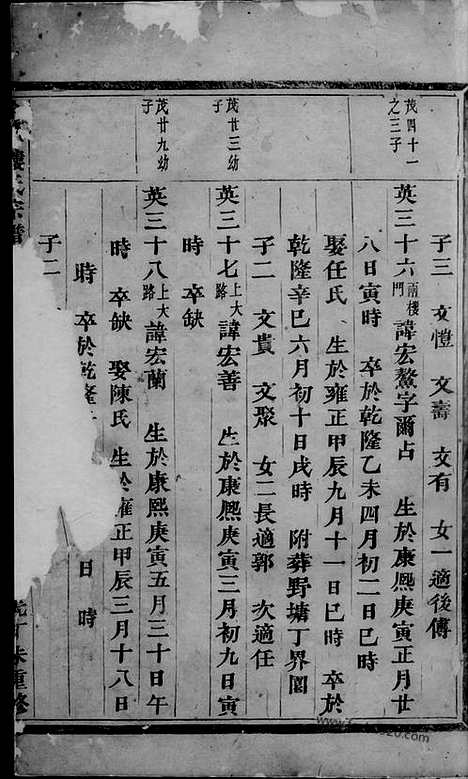 子三 文愷 文壽 文有 女一適後傅
茂四十一
之三子
英三十六 南樓門 諱宏鰲字爾占 生於康熙庚寅正月廿
八日寅時 卒於乾隆乙未四月初二日巳時
娶任氏 生於雍正甲辰九月十一日巳時 卒於
乾隆辛巳六月初十日戌時 附葬野塘丁界圍
子二 文貴 文聚 女二長適郭 次適任
茂廿三幼
子
英三十七 上大路 諱宏善 生於康熙庚寅三月初九日寅
時 卒缺
茂廿九幼
子
英三十八 上大路 諱宏蘭 生於康熙庚寅五月三十日午
時 卒缺 娶陳氏 生於雍正甲辰三月十八日
時 卒於乾隆 日 時
子二
樓氏宗譜
丁未重修